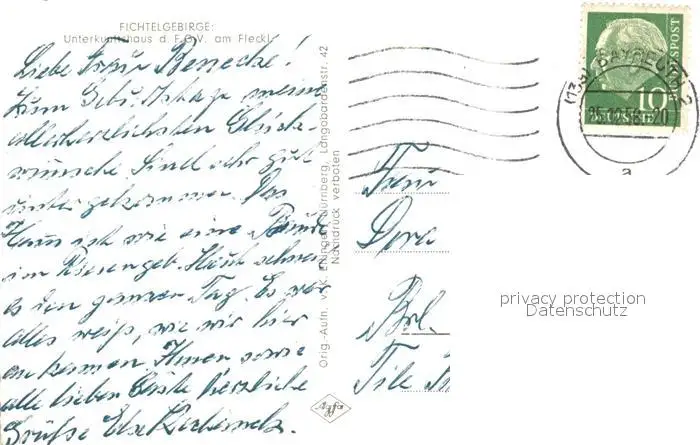 FICHTELGEBIRGE:
Unterkunftshaus d. F.G.V. am Fleckl
Liebe Frau Benecke!
Zum Geburtstage meine
allerherzlichsten Glück-
wünsche. Sind sehr gut
untergekommen. Das
Haus ist wie eine Baude
im Riesengeb. Heut schneit
es den ganzen Tag. Es war
alles weiß, wie wir hier
ankamen Ihnen sowie
alle lieben Gäste herzliche
Grüße Else
Orig.-Aufn. v. Nürnberg, Langobardenstr. 42
Nachdruck verboten
Agfa
BAYREUTH 2
a
10
DEUTSCHE
Frau
Dora
Brl.
privacy protection
Datenschutz